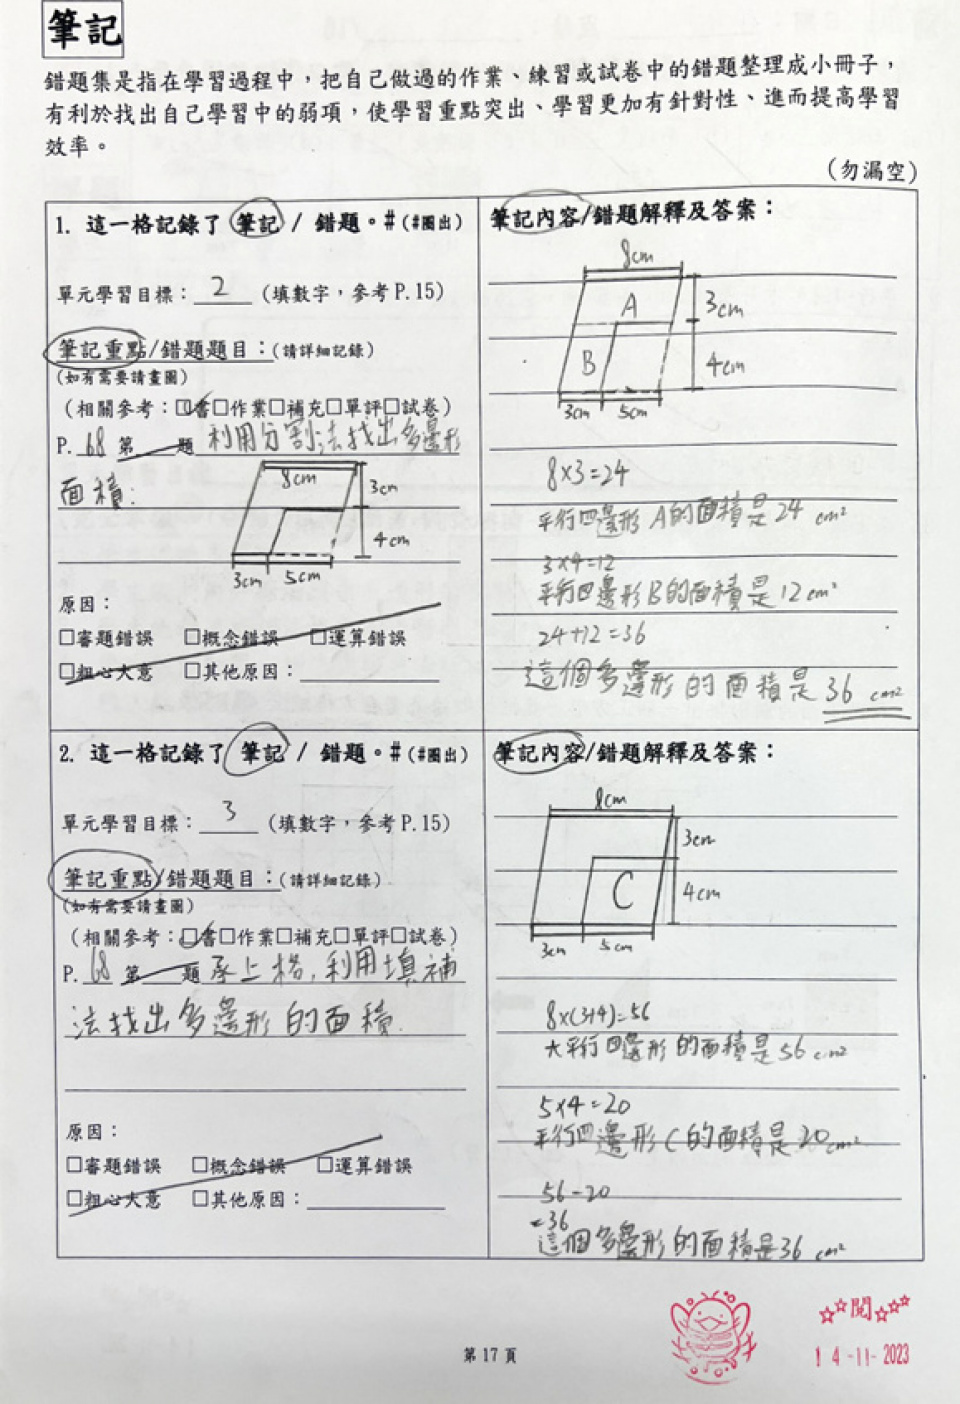 筆記
錯題集是指在學習過程中，把自己做過的作業、練習或試卷中的錯題整理成小冊子，
有利於找出自己學習中的弱項，使學習重點突出、學習更加有針對性、進而提高學習
效率。
(勿漏空)
1. 這一格記錄了 筆記 / 錯題。#(#圈出)
單元學習目標：2 (填數字，參考 P.15)
筆記重點/錯題題目：(請詳細記錄)
(如有需要請畫圖)
(相關參考：☑書□作業□補充□單評□試卷)
P. 68 第 題 利用分割法找出多邊形
面積：
8cm
3cm
4cm
3cm 5cm
原因：
□審題錯誤 □概念錯誤 □運算錯誤
□粗心大意 □其他原因：
筆記內容/錯題解釋及答案：
8cm
A
3cm
B
4cm
3cm 5cm
8×3=24
平行四邊形A的面積是24 cm²
3×4=12
平行四邊形B的面積是12cm²
24+12=36
這個多邊形的面積是36 cm²
2. 這一格記錄了 筆記 / 錯題。#(#圈出)
單元學習目標：3 (填數字，參考 P.15)
筆記重點/錯題題目：(請詳細記錄)
(如有需要請畫圖)
(相關參考：☑書□作業□補充□單評□試卷)
P. 68 第 題 承上格，利用填補
法找出多邊形的面積.
原因：
□審題錯誤 □概念錯誤 □運算錯誤
□粗心大意 □其他原因：
筆記內容/錯題解釋及答案：
8cm
3cm
C
4cm
3cm 5cm
8×(3+4)=56
大平行四邊形的面積是56 cm²
5×4=20
平行四邊形C的面積是20cm²
56-20
=36
這個多邊形的面積是36 cm²
☆☆閱☆☆☆
14-11-2023
第 17 頁